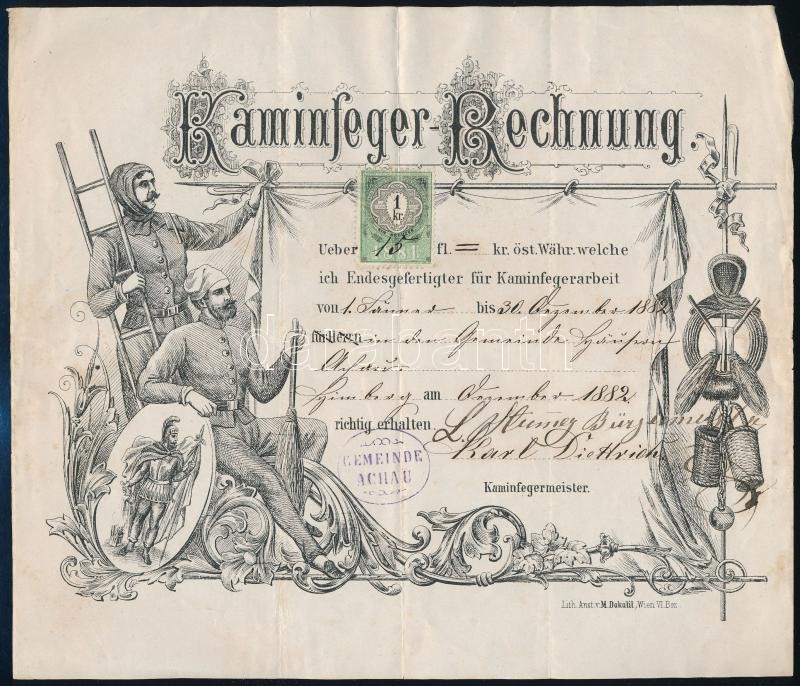 Kaminfeger-Rechnung.
1
kr.
Ueber 15 fl. = kr. öst. Währ. welche
ich Endesgefertigter für Kaminfegerarbeit
von 1. Jänner bis 30. Dezember 1882
für Herrn in den Gemeinde Häusern
Achau
Himberg am Dezember 1882
richtig erhalten.
Karl Diettrich
GEMEINDE
ACHAU
Kaminfegermeister.
Lith. Anst. v. M. Dokulil, Wien VI. Bez.
darabanth